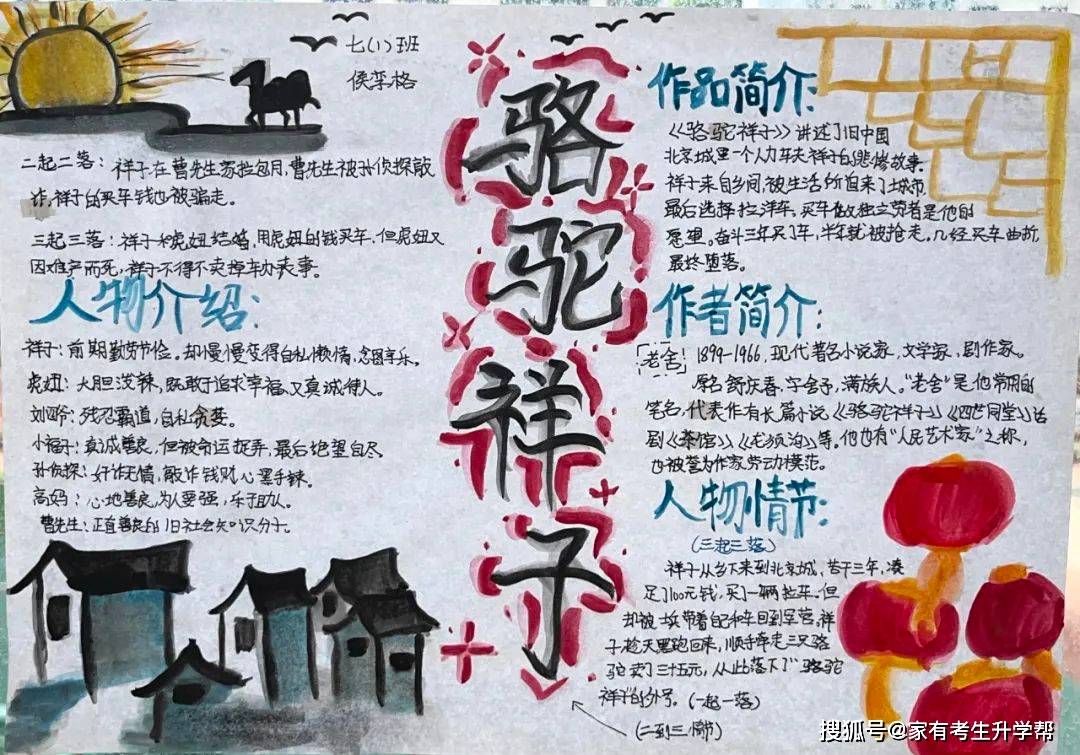 七(1)班
侯孪格
骆驼祥子
二起二落：祥子在曹先生家拉包月，曹先生被孙侦探敲
诈，祥子的买车钱也被骗走。
三起三落：祥子和虎妞结婚，用虎妞的钱买车，但虎妞又
因难产而死，祥子不得不卖掉车办丧事。
人物介绍：
祥子：前期勤劳节俭。却慢慢变得自私懒惰，贪图享乐。
虎妞：大胆泼辣，既敢于追求幸福，又真诚待人。
刘四爷：残忍霸道，自私贪婪。
小福子：真诚善良，但被命运捉弄，最后绝望自尽
孙侦探：奸诈无情，敲诈钱财心黑手辣。
高妈：心地善良，为人要强，乐于助人。
曹先生：正直善良的旧社会知识分子。
作品简介：
《骆驼祥子》讲述了旧中国
北京城里一个人力车夫祥子的悲惨故事。
祥子来自乡间，被生活所迫来了城市
最后选择拉洋车，买车做独立劳者是他的
愿望。奋斗三年买了车，半年就被抢走。几经买车曲折，
最终堕落。
作者简介：
老舍 1899-1966，现代著名小说家，文学家，剧作家。
原名舒庆春，字舍予，满族人。"老舍"是他常用的
笔名，代表作有长篇小说《骆驼祥子》《四世同堂》话
剧《茶馆》《龙须沟》等。他也有"人民艺术家"之称，
也被誉为作家劳动模范。
人物情节：
(三起三落)
祥子从乡下来到北京城，苦干三年，凑
足了100元钱，买了一辆拉车。但
却被士兵带着自己和车回到军营，祥
子趁天黑跑回来，顺手牵走三只骆
驼卖了三十五元，从此落下了"骆驼
祥子"的外号。(一起一落)
(二到三情节)
搜狐号@家有考生升学帮